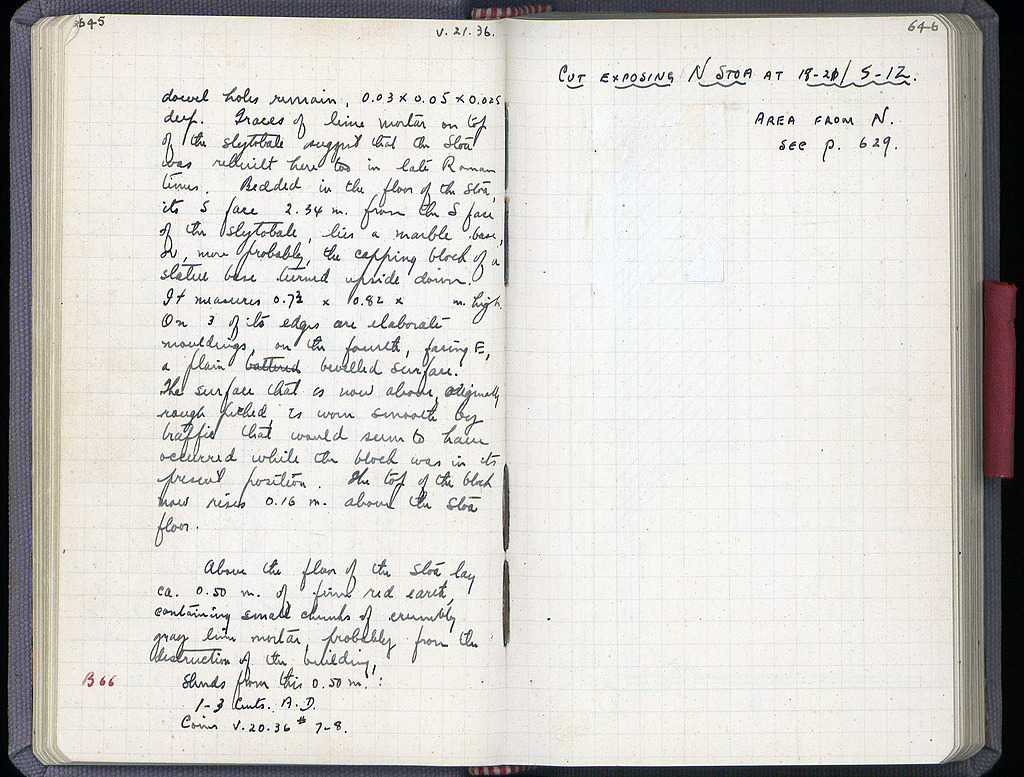 645
V. 21. 36.
dowel holes remain, 0.03 x 0.05 x 0.025
deep. Traces of lime mortar on top
of the stylobate suggest that the Stoa
was rebuilt here too in late Roman
times. Bedded in the floor of the Stoa,
its S face 2.34 m. from the S face
of the stylobate, lies a marble base,
or, more probably, the capping block of a
statue base turned upside down.
It measures 0.73 x 0.82 x m. high.
On 3 of its edges are elaborate
mouldings, on the fourth, facing E,
a plain battered bevelled surface.
The surface that is now above, originally
rough picked, is worn smooth by
traffic that would seem to have
occurred while the block was in its
present position. The top of the block
now rises 0.16 m. above the Stoa
floor.
Above the floor of the Stoa lay
ca. 0.50 m. of firm red earth,
containing small chunks of crumbly
gray lime mortar probably from the
destruction of the building,
B 66
Sherds from this 0.50 m.:
1-3 Cents. A.D.
Coins V.20.36 # 7-8.
646
CUT EXPOSING N STOA AT 18-20/5-12.
AREA FROM N.
SEE p. 629.